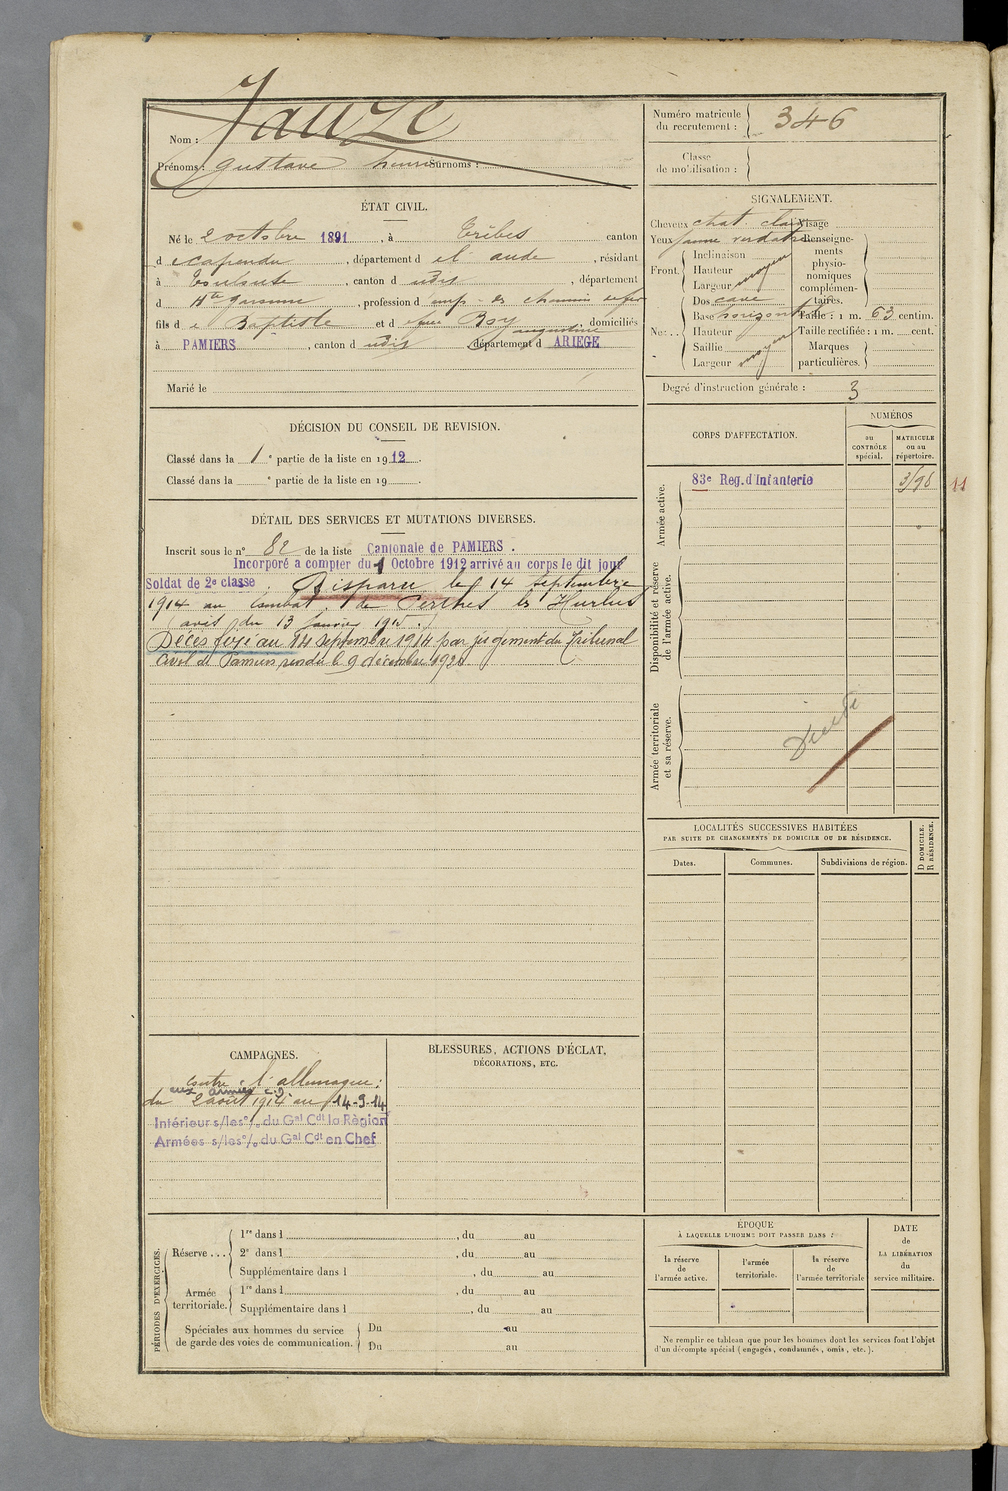 Nom : Jauze
Prénoms : Gustave henri Surnoms :
Numéro matricule du recrutement : 346
Classe de mobilisation :
ÉTAT CIVIL.
Né le 2 octobre 1891, à Trèbes canton
de Capendu, département de l'aude, résidant
à Toulouse, canton d udis, département
d Hte Garonne, profession d'emp. des chemins de fer
fils de Baptiste et de feue Boy augustine domiciliés
à PAMIERS, canton d udis département d ARIEGE
Marié le
SIGNALEMENT.
Cheveux chat. clair Visage
Yeux jaune verdatre
Front. Inclinaison
Hauteur
Largeur moyen
Nez. Dos cave
Base horizontale
Hauteur
Saillie
Largeur moyen
Renseignements physionomiques complémentaires.
Taille : 1 m. 63 centim.
Taille rectifiée : 1 m. cent.
Marques particulières.
Degré d'instruction générale : 3
DÉCISION DU CONSEIL DE REVISION.
Classé dans la 1e partie de la liste en 1912.
Classé dans la e partie de la liste en 19 .
CORPS D'AFFECTATION.
NUMÉROS
au CONTRÔLE spécial.
MATRICULE ou au répertoire.
Armée active.
83e Reg. d'Infanterie
Disponibilité et réserve de l'armée active.
Armée territoriale et sa réserve.
DÉTAIL DES SERVICES ET MUTATIONS DIVERSES.
Inscrit sous le n° 82 de la liste Cantonale de PAMIERS.
Incorporé a compter du 1 Octobre 1912 arrivé au corps le dit jour
Soldat de 2e classe. Disparu le 14 Septembre
1914 au combat de Perthes les Hurlus
(avis du 13 Janvier 1915.)
Décès fixé au 14 septembre 1914 par jugement du Tribunal
Civil de Pamiers, rendu le 9 décembre 1920
LOCALITÉS SUCCESSIVES HABITÉES
PAR SUITE DE CHANGEMENTS DE DOMICILE OU DE RÉSIDENCE.
Dates.
Communes.
Subdivisions de région.
D DOMICILE. R RÉSIDENCE.
CAMPAGNES.
Contre l'allemagne :
aux armées
du 2 août 1914 au 14-9-14
Intérieur s/les o/. du Gal Cdt la Règion
Armées s/les o/. du Gal Cdt en Chef
BLESSURES, ACTIONS D'ÉCLAT,
DÉCORATIONS, ETC.
PÉRIODES D'EXERCICES.
Réserve ...
1re dans l , du au
2e dans l , du au
Supplémentaire dans l , du au
Armée territoriale.
1re dans l , du au
Supplémentaire dans l , du au
Spéciales aux hommes du service de garde des voies de communication.
Du au
Du au
ÉPOQUE
À LAQUELLE L'HOMME DOIT PASSER DANS :
la réserve de l'armée active.
l'armée territoriale.
la réserve de l'armée territoriale
DATE de LA LIBÉRATION du service militaire.
Ne remplir ce tableau que pour les hommes dont les services font l'objet
d'un décompte spécial (engagés, condamnés, omis, etc.).